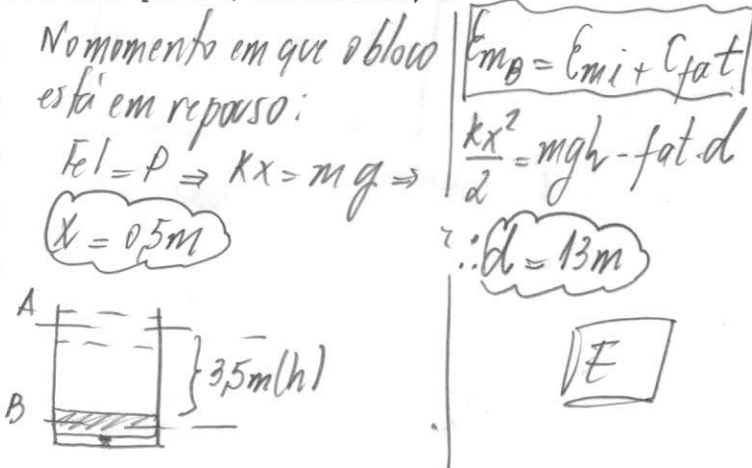 No momento em que o bloco
está em repouso:
Fel = P ⇒ Kx = mg ⇒
x = 0,5m
A
B
} 3,5m(h)
EmB = Emi + Cfat
kx²/2 = mgh - fat.d
∴ d = 13m
E